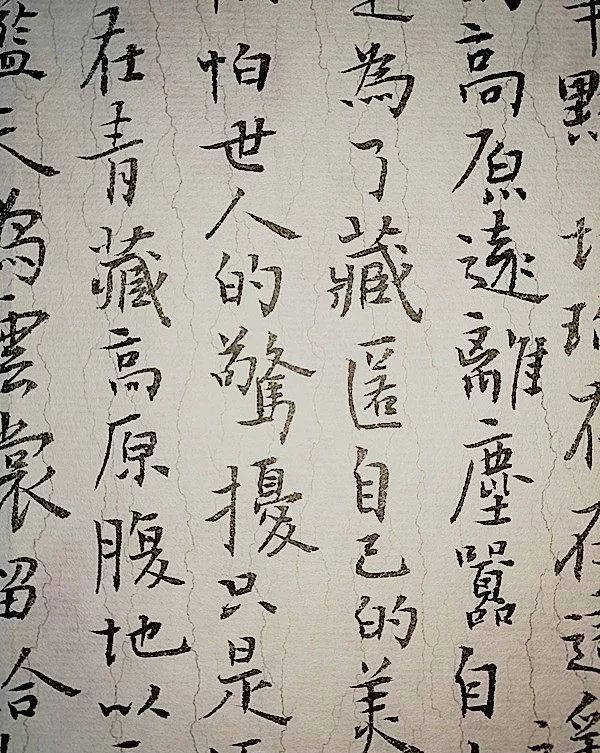 點 在這
高原遠離塵囂自
為了藏匿自己的美
怕世人的驚擾只是
在青藏高原腹地以
藍天為雲裳留給